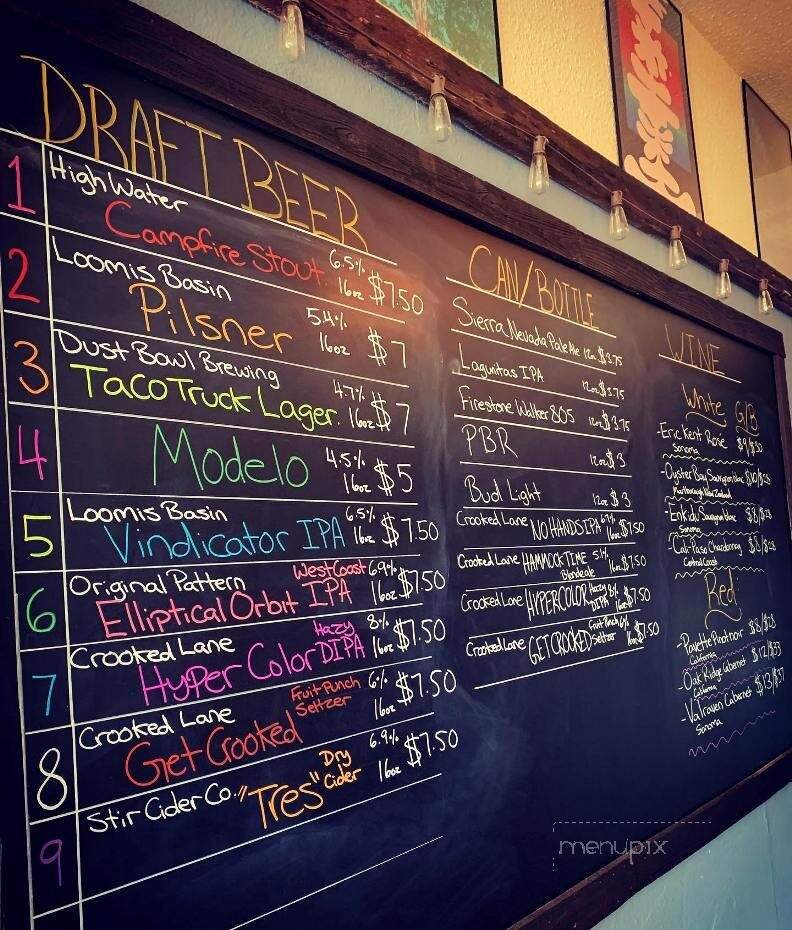 DRAFT BEER
1 High Water
Campfire Stout 6.5% 16oz $7.50
2 Loomis Basin
Pilsner 5.4% 16oz $7
3 Dust Bowl Brewing
Taco Truck Lager. 4.7% 16oz $7
4 Modelo 4.5% 16oz $5
5 Loomis Basin
Vindicator IPA 6.5% 16oz $7.50
6 Original Pattern
Elliptical Orbit West Coast IPA 6.9% 16oz $7.50
7 Crooked Lane
Hyper Color Hazy DIPA 8% 16oz $7.50
8 Crooked Lane
Get Crooked Fruit Punch Seltzer 6% 16oz $7.50
9 Stir Cider Co. "Tres" Dry Cider 6.9% 16oz $7.50
CAN/BOTTLE
Sierra Nevada Pale Ale 12oz $3.75
Lagunitas IPA 12oz $3.75
Firestone Walker 805 12oz $3.75
PBR 12oz $3
Bud Light 12oz $3
Crooked Lane NO HANDS IPA 16oz $7.50
Crooked Lane HAMMOCK TIME Blonde ale 16oz $7.50
Crooked Lane HYPERCOLOR Hazy DIPA 8% 16oz $7.50
Crooked Lane GET CROOKED Fruit Punch Seltzer 6% 16oz $7.50
WINE
White G/B
-Eric Kent Rose $9/$30
Sonoma
-Oyster Bay Sauvignon blanc
Marlborough New Zealand
-Enkidu Sauvignon blanc $8/$28
Sonoma
-Cali-Paso Chardonnay $8/$28
Central Coast
Red
-Pavette Pinot noir $8/$28
California
-Oak Ridge Cabernet $12/$33
California
-Valraven Cabernet $13/$37
Sonoma
menupix